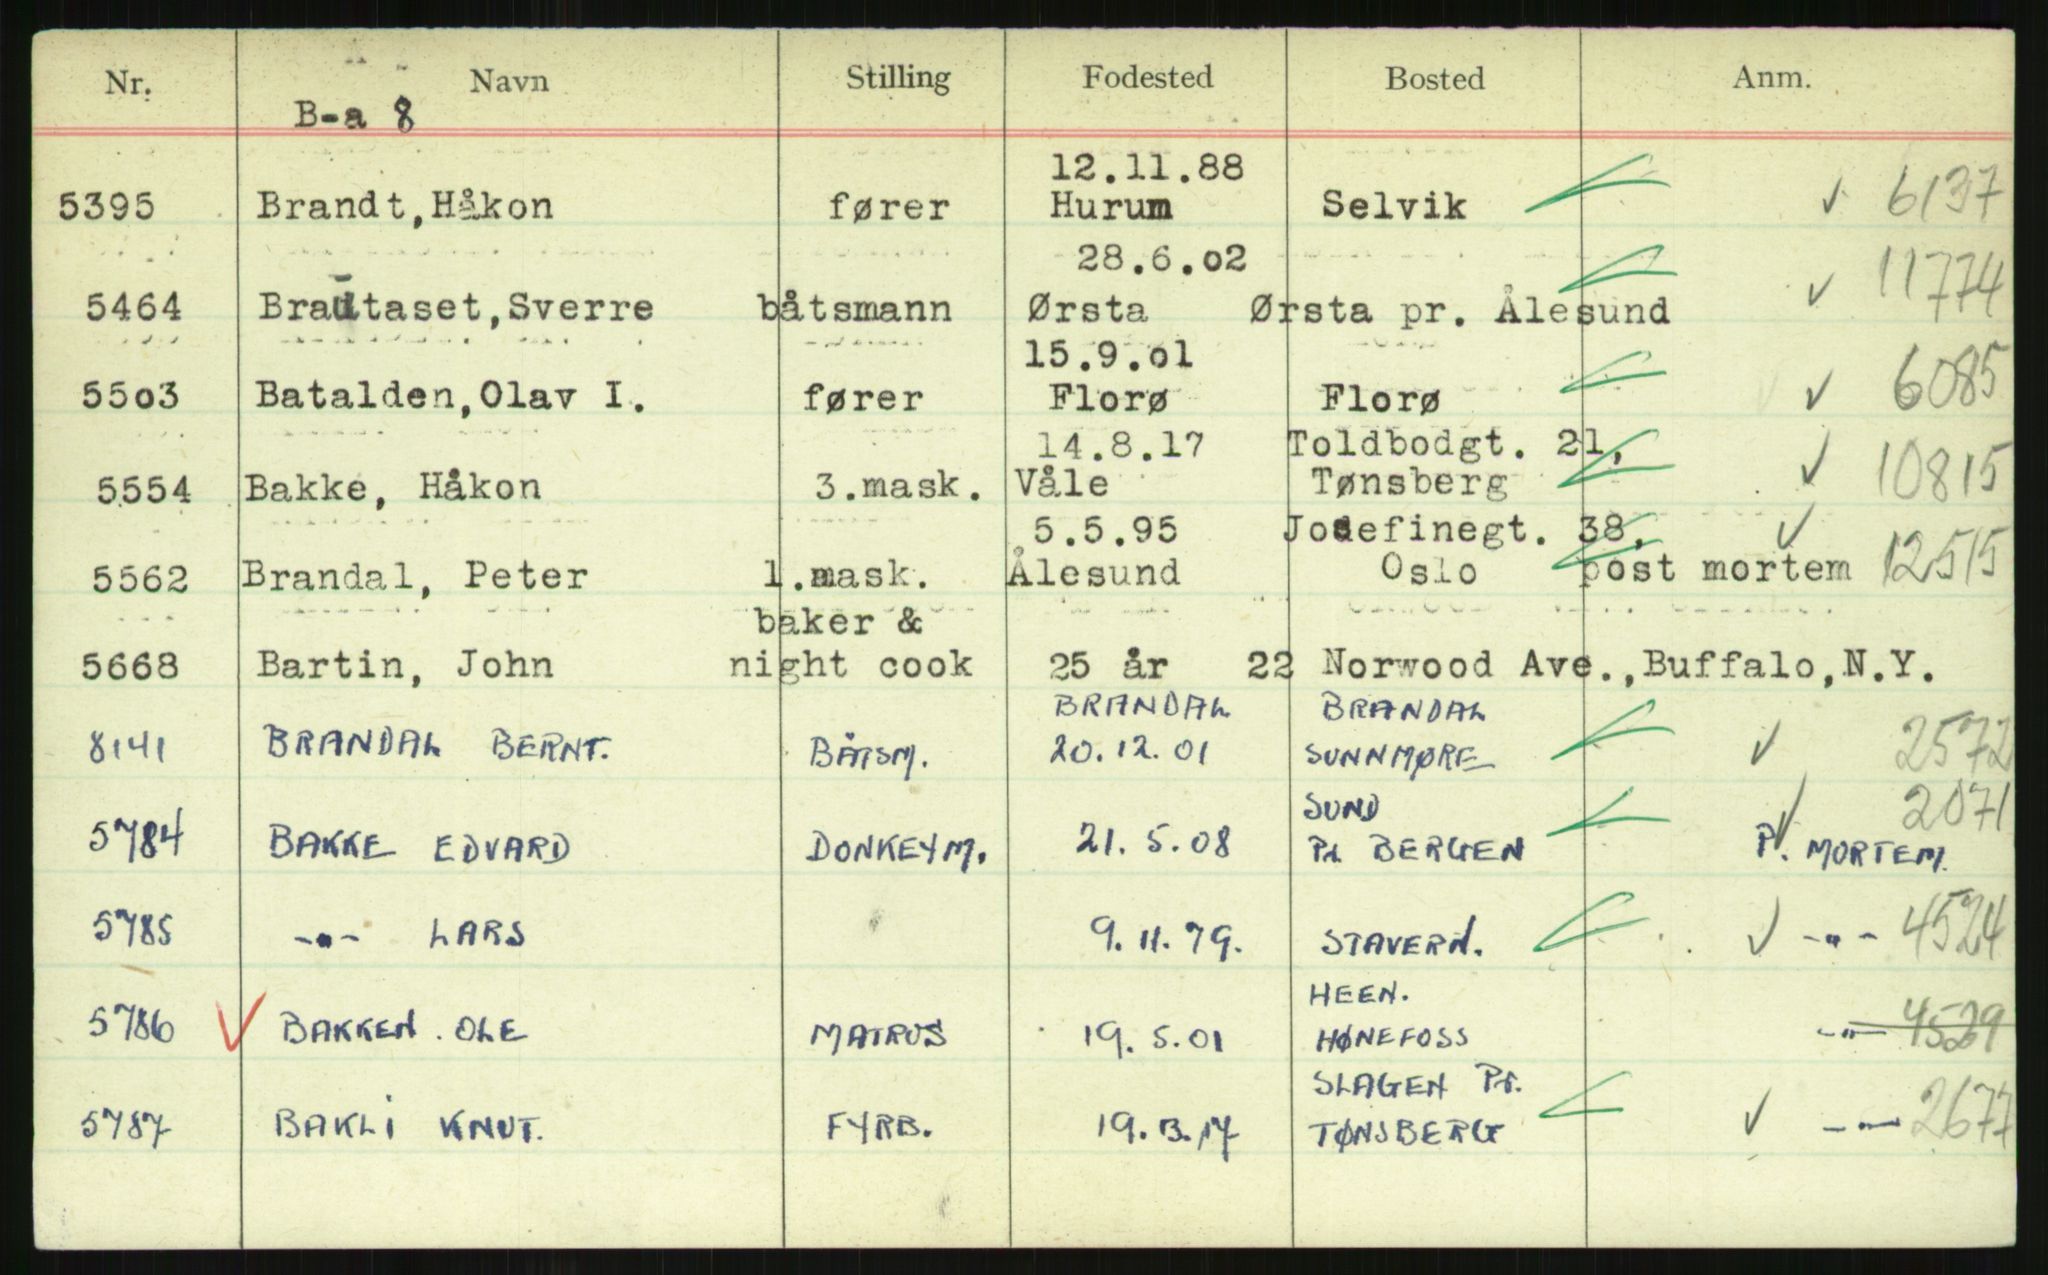 Nr. Navn Stilling Fodested Bosted Anm.
B-a 8
12.11.88
5395 Brandt,Håkon fører Hurum Selvik ✓ 6137
28.6.02
5464 Brautaset,Sverre båtsmann Ørsta Ørsta pr. Ålesund ✓ 11774
15.9.01
5503 Batalden,Olav I. fører Florø Florø ✓ 6085
14.8.17 Toldbodgt. 21,
5554 Bakke, Håkon 3.mask. Våle Tønsberg ✓ 10815
5.5.95 Josefinegt. 38, ✓
5562 Brandal, Peter 1.mask. Ålesund Oslo post mortem 12515
baker &
5668 Bartin, John night cook 25 år 22 Norwood Ave.,Buffalo,N.Y.
BRANDAL BRANDAL
8141 BRANDAL BERNT. BÅTSM. 20.12.01 SUNNMØRE ✓ 2572
SUND 2071
5784 BAKKE EDVARD DONKEYM. 21.5.08 Pr. BERGEN ✓ P. MORTEM.
5785 -"- LARS 9.11.79. STAVERN. ✓ -"- 4524
HEEN.
5786 ✓ BAKKEN. OLE MATROS 19.5.01 HØNEFOSS -"- 4529
SLAGEN Pr.
5787 BAKLI KNUT. FYRB. TØNSBERG ✓ -"- 2677